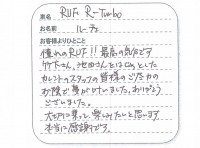 車名 RUF R-Turbo
お名前 ルーフ
お客様よりひとこと
憧れのRUF!! 最高の気分です
竹下さん、池田さんをはじめとした
カレントのスタッフの皆様のご尽力の
お陰で夢が叶いました。ありがとう
ございました。
大切に乗って楽しみたいと思います
本当に感謝です。